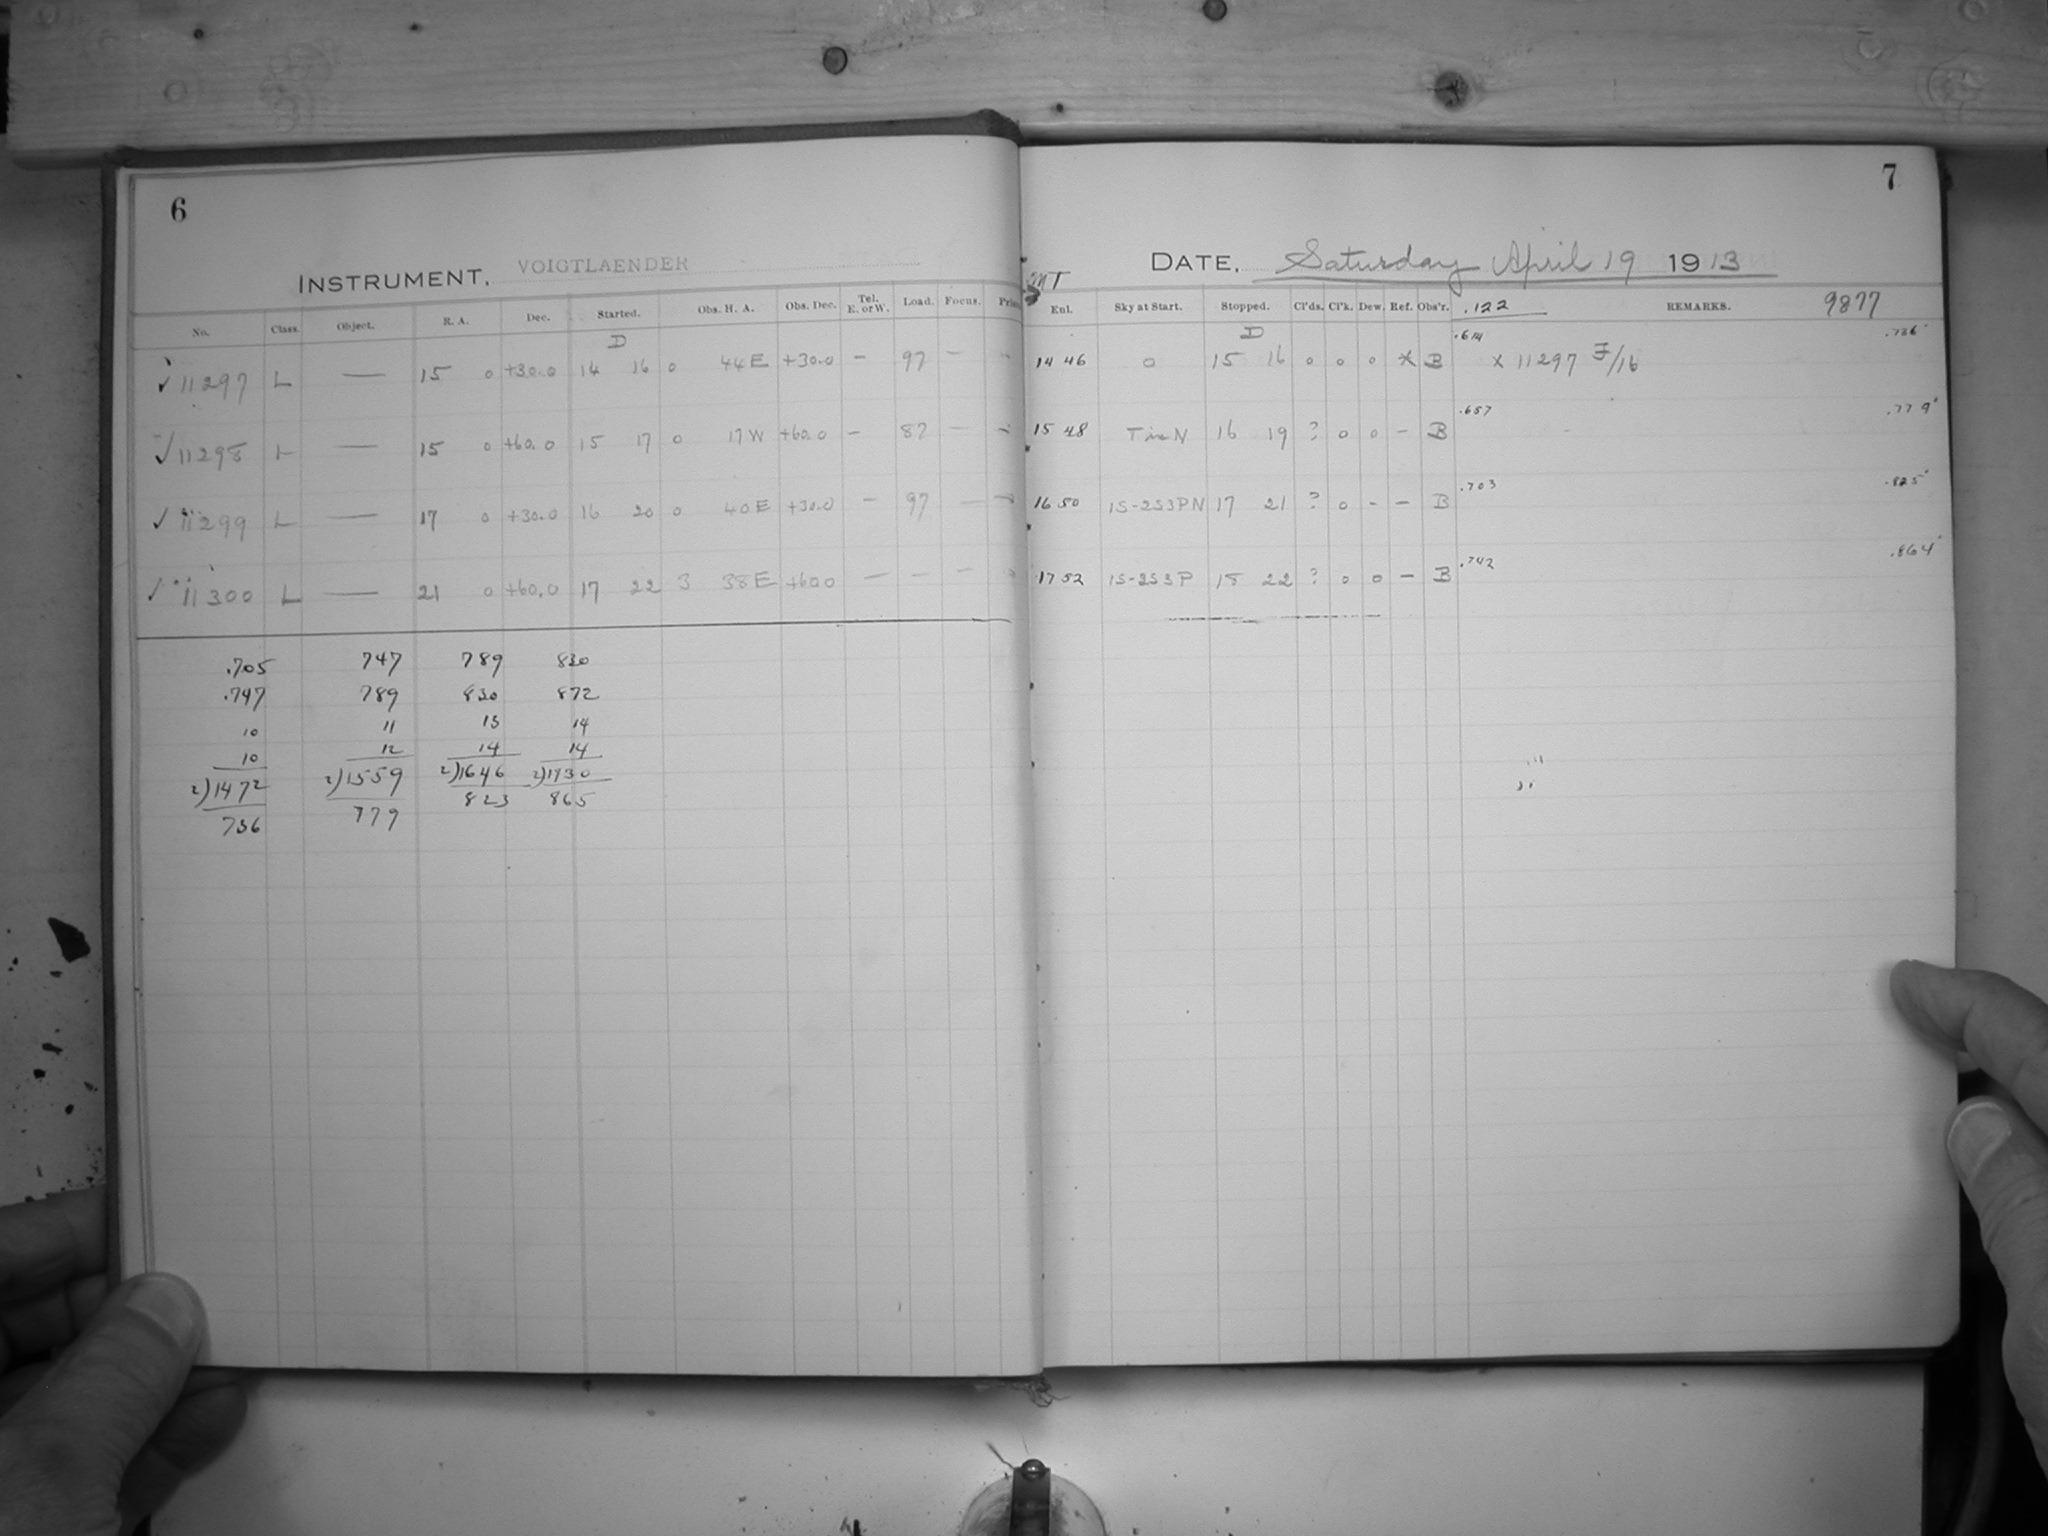 6
7
INSTRUMENT, VOIGTLAENDER
DATE, Saturday April 19 1913
No. Class. Object. R. A. Dec. Started. Obs. H. A. Obs. Dec. Tel. E. or W. Load. Focus.
Enl. Sky at Start. Stopped. Cl'ds. Cl'k. Dew. Ref. Obs'r. .122 REMARKS. 9877
D
D .614 .736
✓ 11297 L — 15 0 +30.0 14 16 0 44E +30.0 — 97 — 14 46 0 15 16 0 0 0 X B X 11297 F/16
.657 .779
✓ 11298 L — 15 0 +60.0 15 17 0 17W +60.0 — 87 — 15 48 16 19 ? 0 0 — B
.703 .825
✓ 11299 L — 17 0 +30.0 16 20 0 40E +30.0 — 97 — 16 50 1S-2S3PN 17 21 ? 0 - — B
.742 .864
✓ 11300 L — 21 0 +60.0 17 22 3 38E +60.0 — — — 17 52 1S-2S3P 18 22 ? 0 0 — B
.705 747 789 830
.747 789 830 872
10 11 13 14
10 12 14 14
2)1472 2)1559 2)1646 2)1730
736 779 823 865